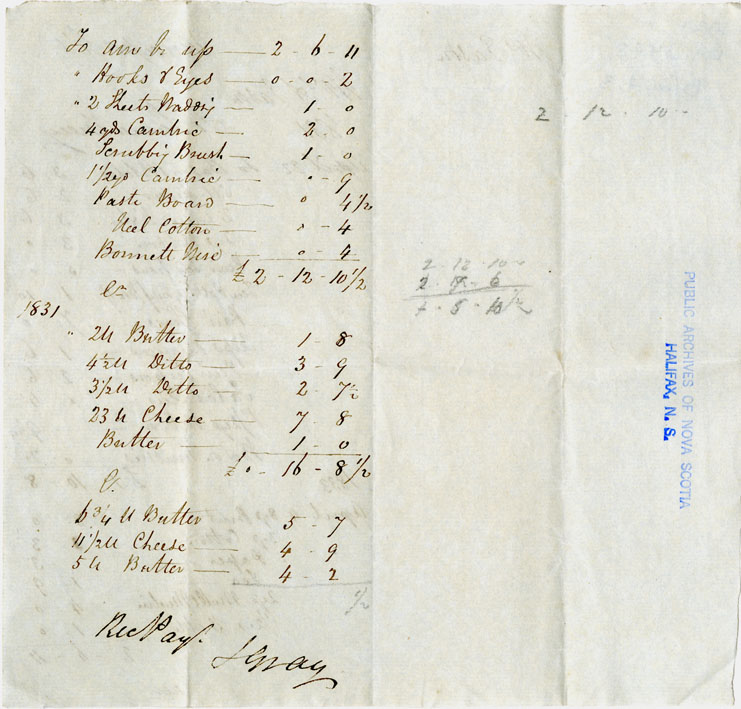 To am bt up — 2 - 6 - 11
" Hooks & Eyes — 0 - 0 - 2
" 2 Sheets Wadding — 1 - 0
4 yds Cambric — 2 - 0
Scrubbig Brush — 1 - 0
1 1/2 yd Cambric — " - 9
Paste Board — " 4 1/2
Reel Cotton — " - 4
Bonnett Wire — " - 4
£ 2 - 12 - 10 1/2
Cr
1831
" 2 lt Butter — 1 - 8
4 1/2 lt Ditto — 3 - 9
3 1/2 lt Ditto — 2 - 7 1/2
23 lt Cheese — 7 - 8
Butter — 1 - 0
£ 0 - 16 - 8 1/2
Cr
6 3/4 lt Butter 5 - 7
11 1/2 lt Cheese — 4 - 9
5 lt Butter — 4 - 2
1/2
Rec Pay.
J Gray
2 - 12 - 10
2 - 12 - 10
PUBLIC ARCHIVES OF NOVA SCOTIA
HALIFAX, N. S.